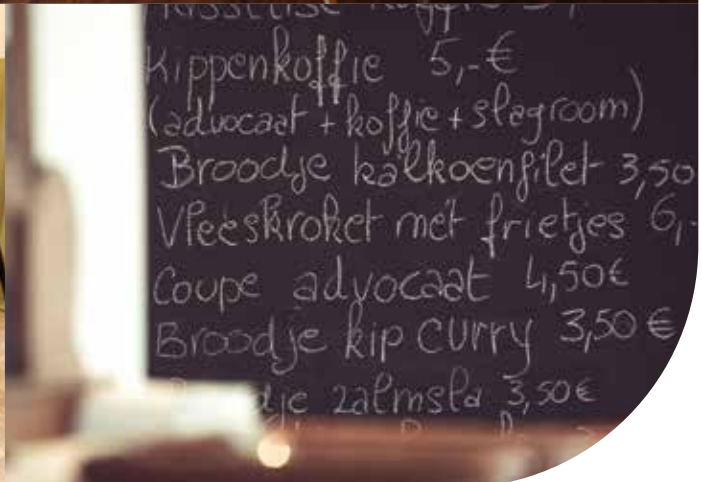 koffie
Kippenkoffie 5,-€
(advocaat + koffie + slagroom)
Broodje kalkoenfilet 3,50
Vleeskroket met frietjes 6,-
Coupe advocaat 4,50€
Broodje kip curry 3,50 €
zalmsla 3,50€